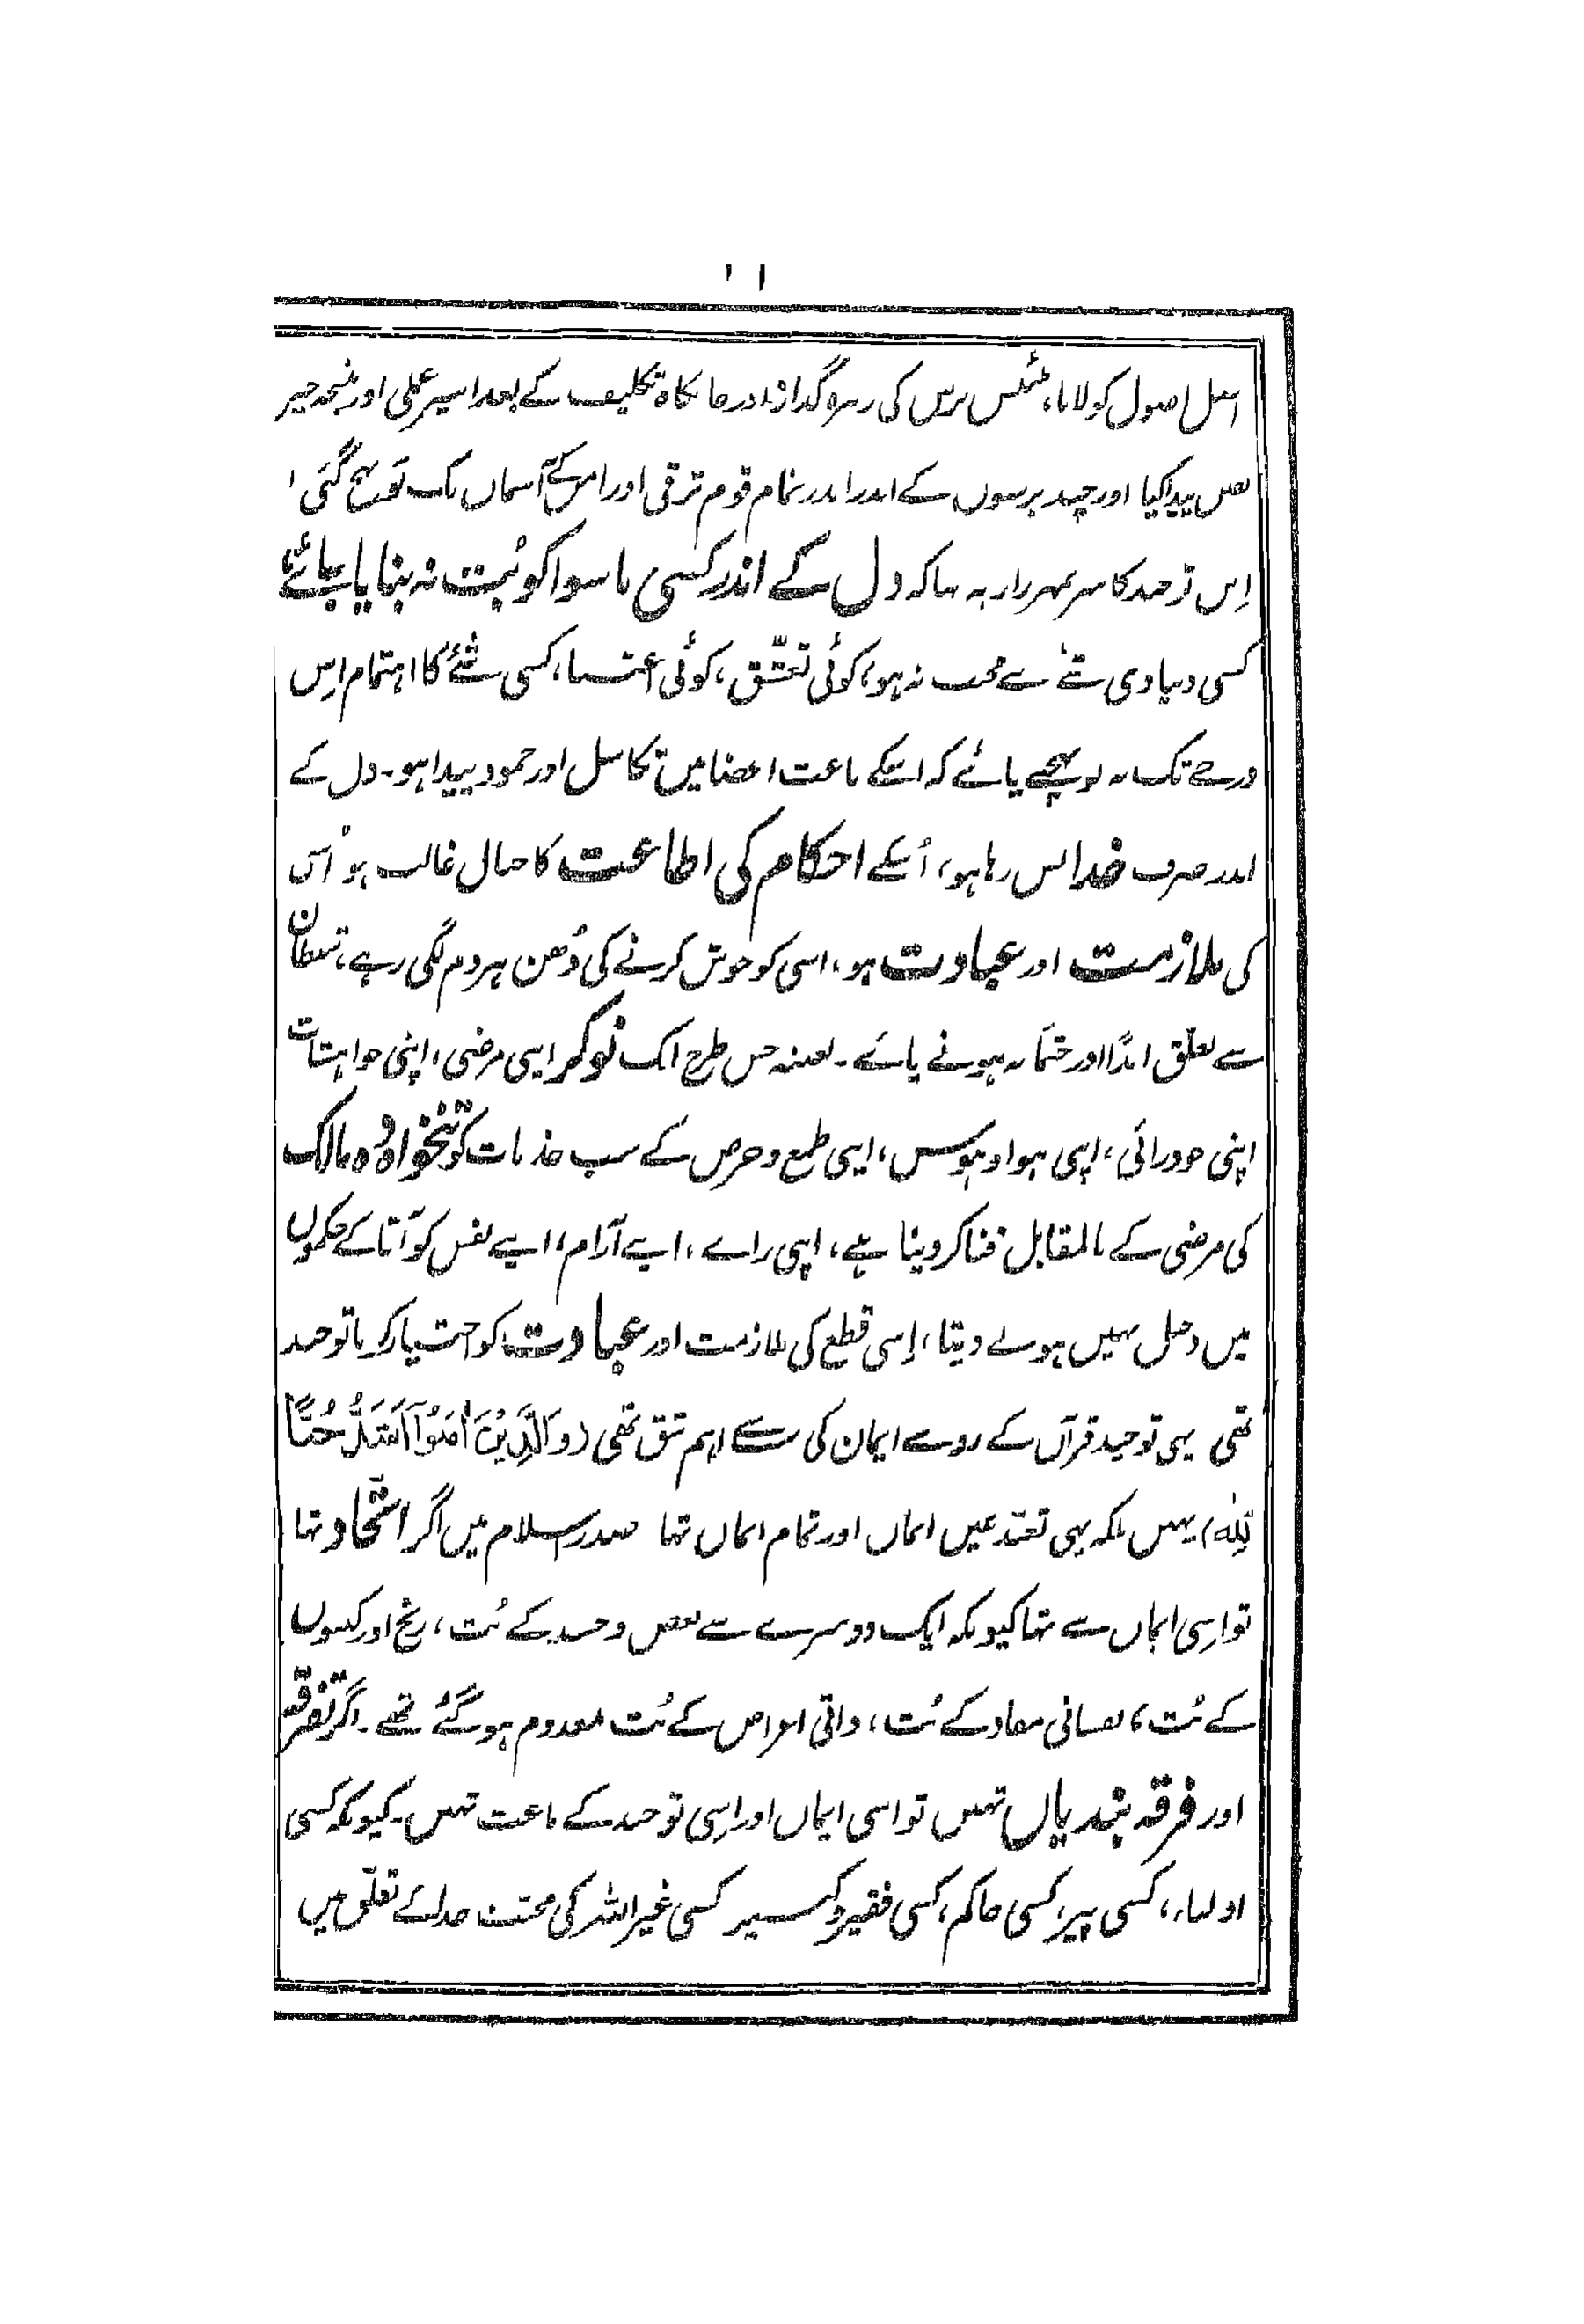 ۱۱
اصل اصول کو لانا، تئیس برس کی زہرہ گداز اور جانکاہ تکلیف کے بعد اسپر عملی اور نتیجہ خیز
یقین پیدا کیا اور چند برسوں کے اندر اندر تمام قوم ترقی اور امن کے آسمان تک پہنچ گئی!
اِس توحید کا سر بسر راز یہ تھا کہ دل کے اندر کسی ماسوا کو بُت نہ بنایا جائے
کسی دنیاوی شئے سے محبت نہ ہو، کوئی تعشّق، کوئی اعتنا، کسی شئے کا اہتمام اِس
درجے تک نہ پہنچنے پائے کہ اسکے باعث اعضا میں تکاسل اور جمود پیدا ہو۔ دل کے
اندر صرف خدا بس رہا ہو، اُسکے احکام کی اطاعت کا خیال غالب ہو، اُسی
کی ملازمت اور عبادت ہو، اسی کو خوش کرنے کی دُھن ہر دم لگی رہے، شیطان
سے تعلّق ابدًا اور حتمًا نہ ہونے پائے۔ بعینہ جس طرح ایک نوکر اپنی مرضی، اپنی خواہشات
اپنی خودرائی، اپنی ہوا و ہوس، اپنی طمع و حرص کے سب جذبات کو تنخواہ دہ مالک
کی مرضی کے بالمقابل فنا کر دیتا ہے، اپنی راے، اپنے آرام، اپنے نفس کو آقا کے حکموں
میں دخل نہیں ہونے دیتا، اِسی قطع کی ملازمت اور عبادت کو اختیار کرنا توحید
تھی یہی توحید قرآں کے رو سے ایمان کی سب سے اہم شق تھی (وَالَّذِيْنَ اٰمَنُوْا اَشَدُّ حُبًّا
لِّلّٰه) نہیں بلکہ یہی تعبّد عین ایماں اور تمام ایماں تھا صدر اسلام میں اگر اتّحاد تھا
تو اِسی ایماں سے تھا کیونکہ ایک دوسرے سے بغض و حسد کے بُت، رنج اور کینوں
کے بُت، نفسانی مفاد کے بُت، ذاتی اغراض کے بُت معدوم ہو گئے تھے۔ اگر تفرقہ
اور فرقہ بندیاں نہیں تو اسی ایماں اور اِسی توحید کے باعث نہیں۔ کیونکہ کسی
اولیاء، کسی پیر، کسی حاکم، کسی فقیر و کبیر کسی غیر اللہ کی محبّت خدا کے تعلّق میں